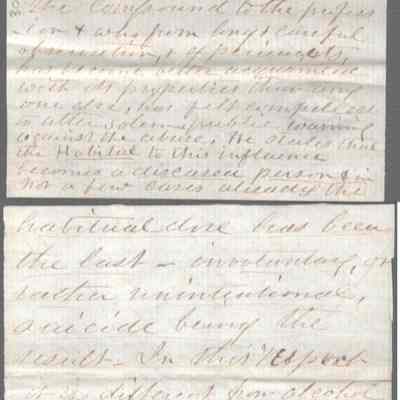 the compound to the profess
ion & who from long & careful
observation, & experiments,
has some other acquaintance
with its properties than any
one else, has felt compelled
to utter solemn public warning
against the abuse. He states that
the Habitué to this influence
becomes a diseased person & in
not a few cases already the
habitual dose has been
the last – involuntary, or
rather unintentional,
suicide being the
result – In this respect
it is different from alcohol